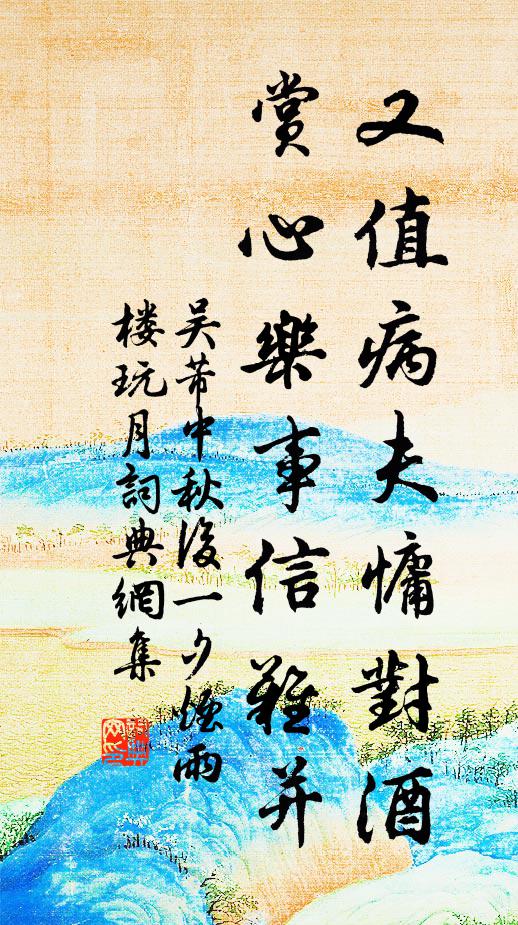 又值病夫慵對酒
賞心樂事信難并
吴芾中秋後一夕煙雨
楼玩月詞典網集